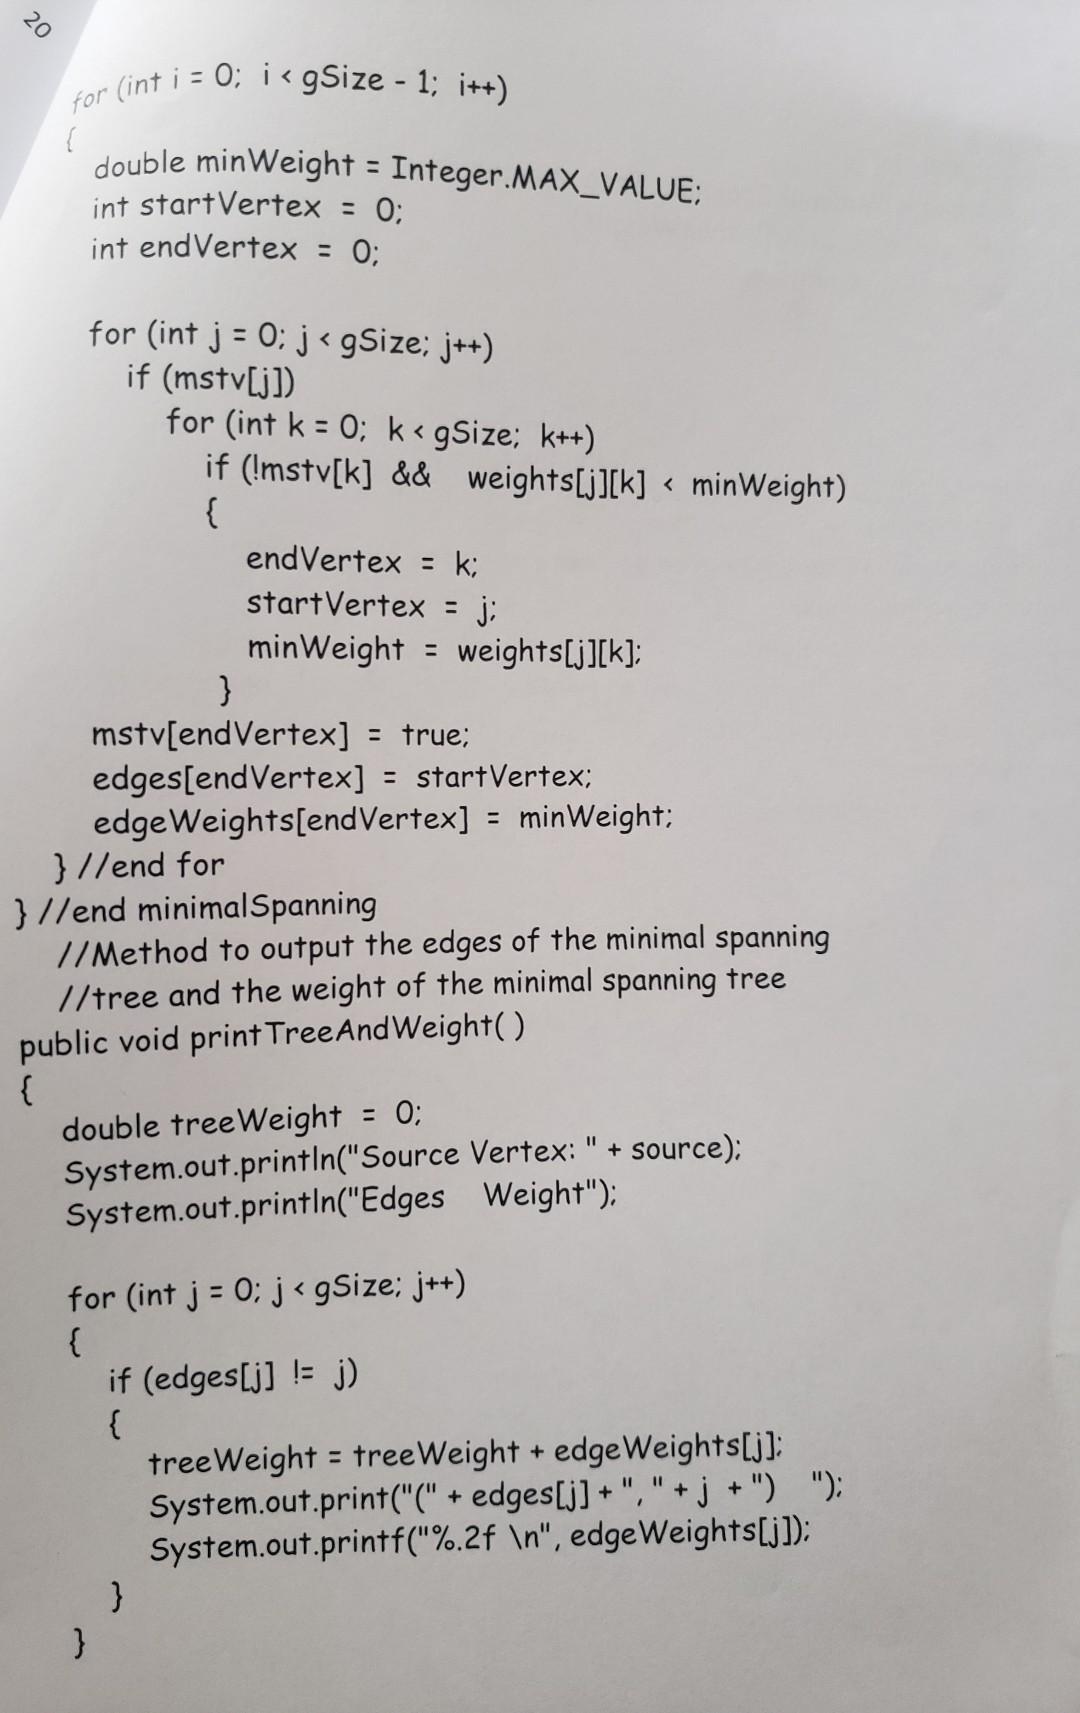 20
for (int i = 0; i < gSize - 1; i++)
{
double minWeight = Integer.MAX_VALUE;
int startVertex = 0;
int endVertex = 0;
for (int j = 0; j < gSize; j++)
if (mstv[j])
for (int k = 0; k < gSize; k++)
if (!mstv[k] && weights[j][k] < minWeight)
{
endVertex = k;
startVertex = j;
minWeight = weights[j][k];
}
mstv[endVertex] = true;
edges[endVertex] = startVertex;
edgeWeights[endVertex] = minWeight;
} //end for
} //end minimalSpanning
//Method to output the edges of the minimal spanning
//tree and the weight of the minimal spanning tree
public void printTreeAndWeight( )
{
double treeWeight = 0;
System.out.println("Source Vertex: " + source);
System.out.println("Edges Weight");
for (int j = 0; j < gSize; j++)
{
if (edges[j] != j)
{
treeWeight = treeWeight + edgeWeights[j];
System.out.print("(" + edges[j] + ", " + j + ") ");
System.out.printf("%.2f \n", edgeWeights[j]);
}
}